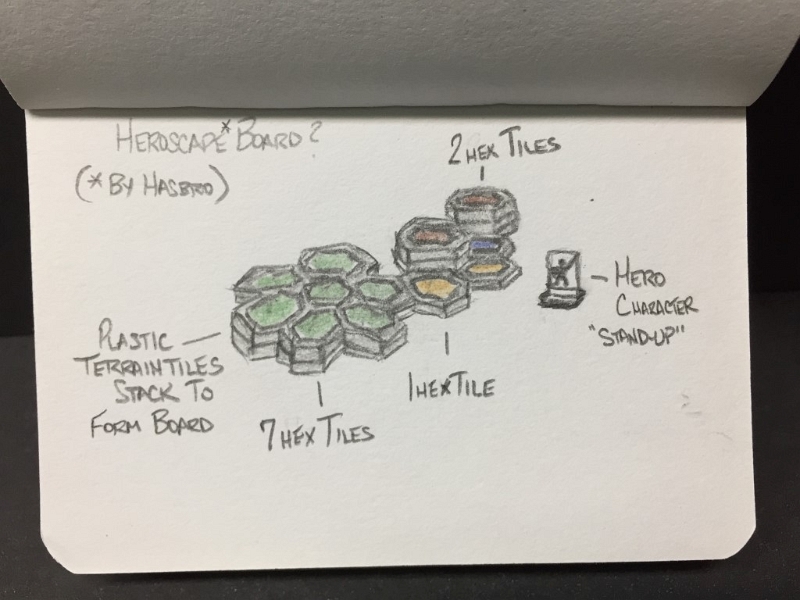 HEROSCAPE* BOARD?
(* BY HASBRO)
2 HEX TILES
HERO
CHARACTER
"STAND-UP"
PLASTIC
TERRAIN TILES
STACK TO
FORM BOARD
7 HEX TILES
1 HEX TILE